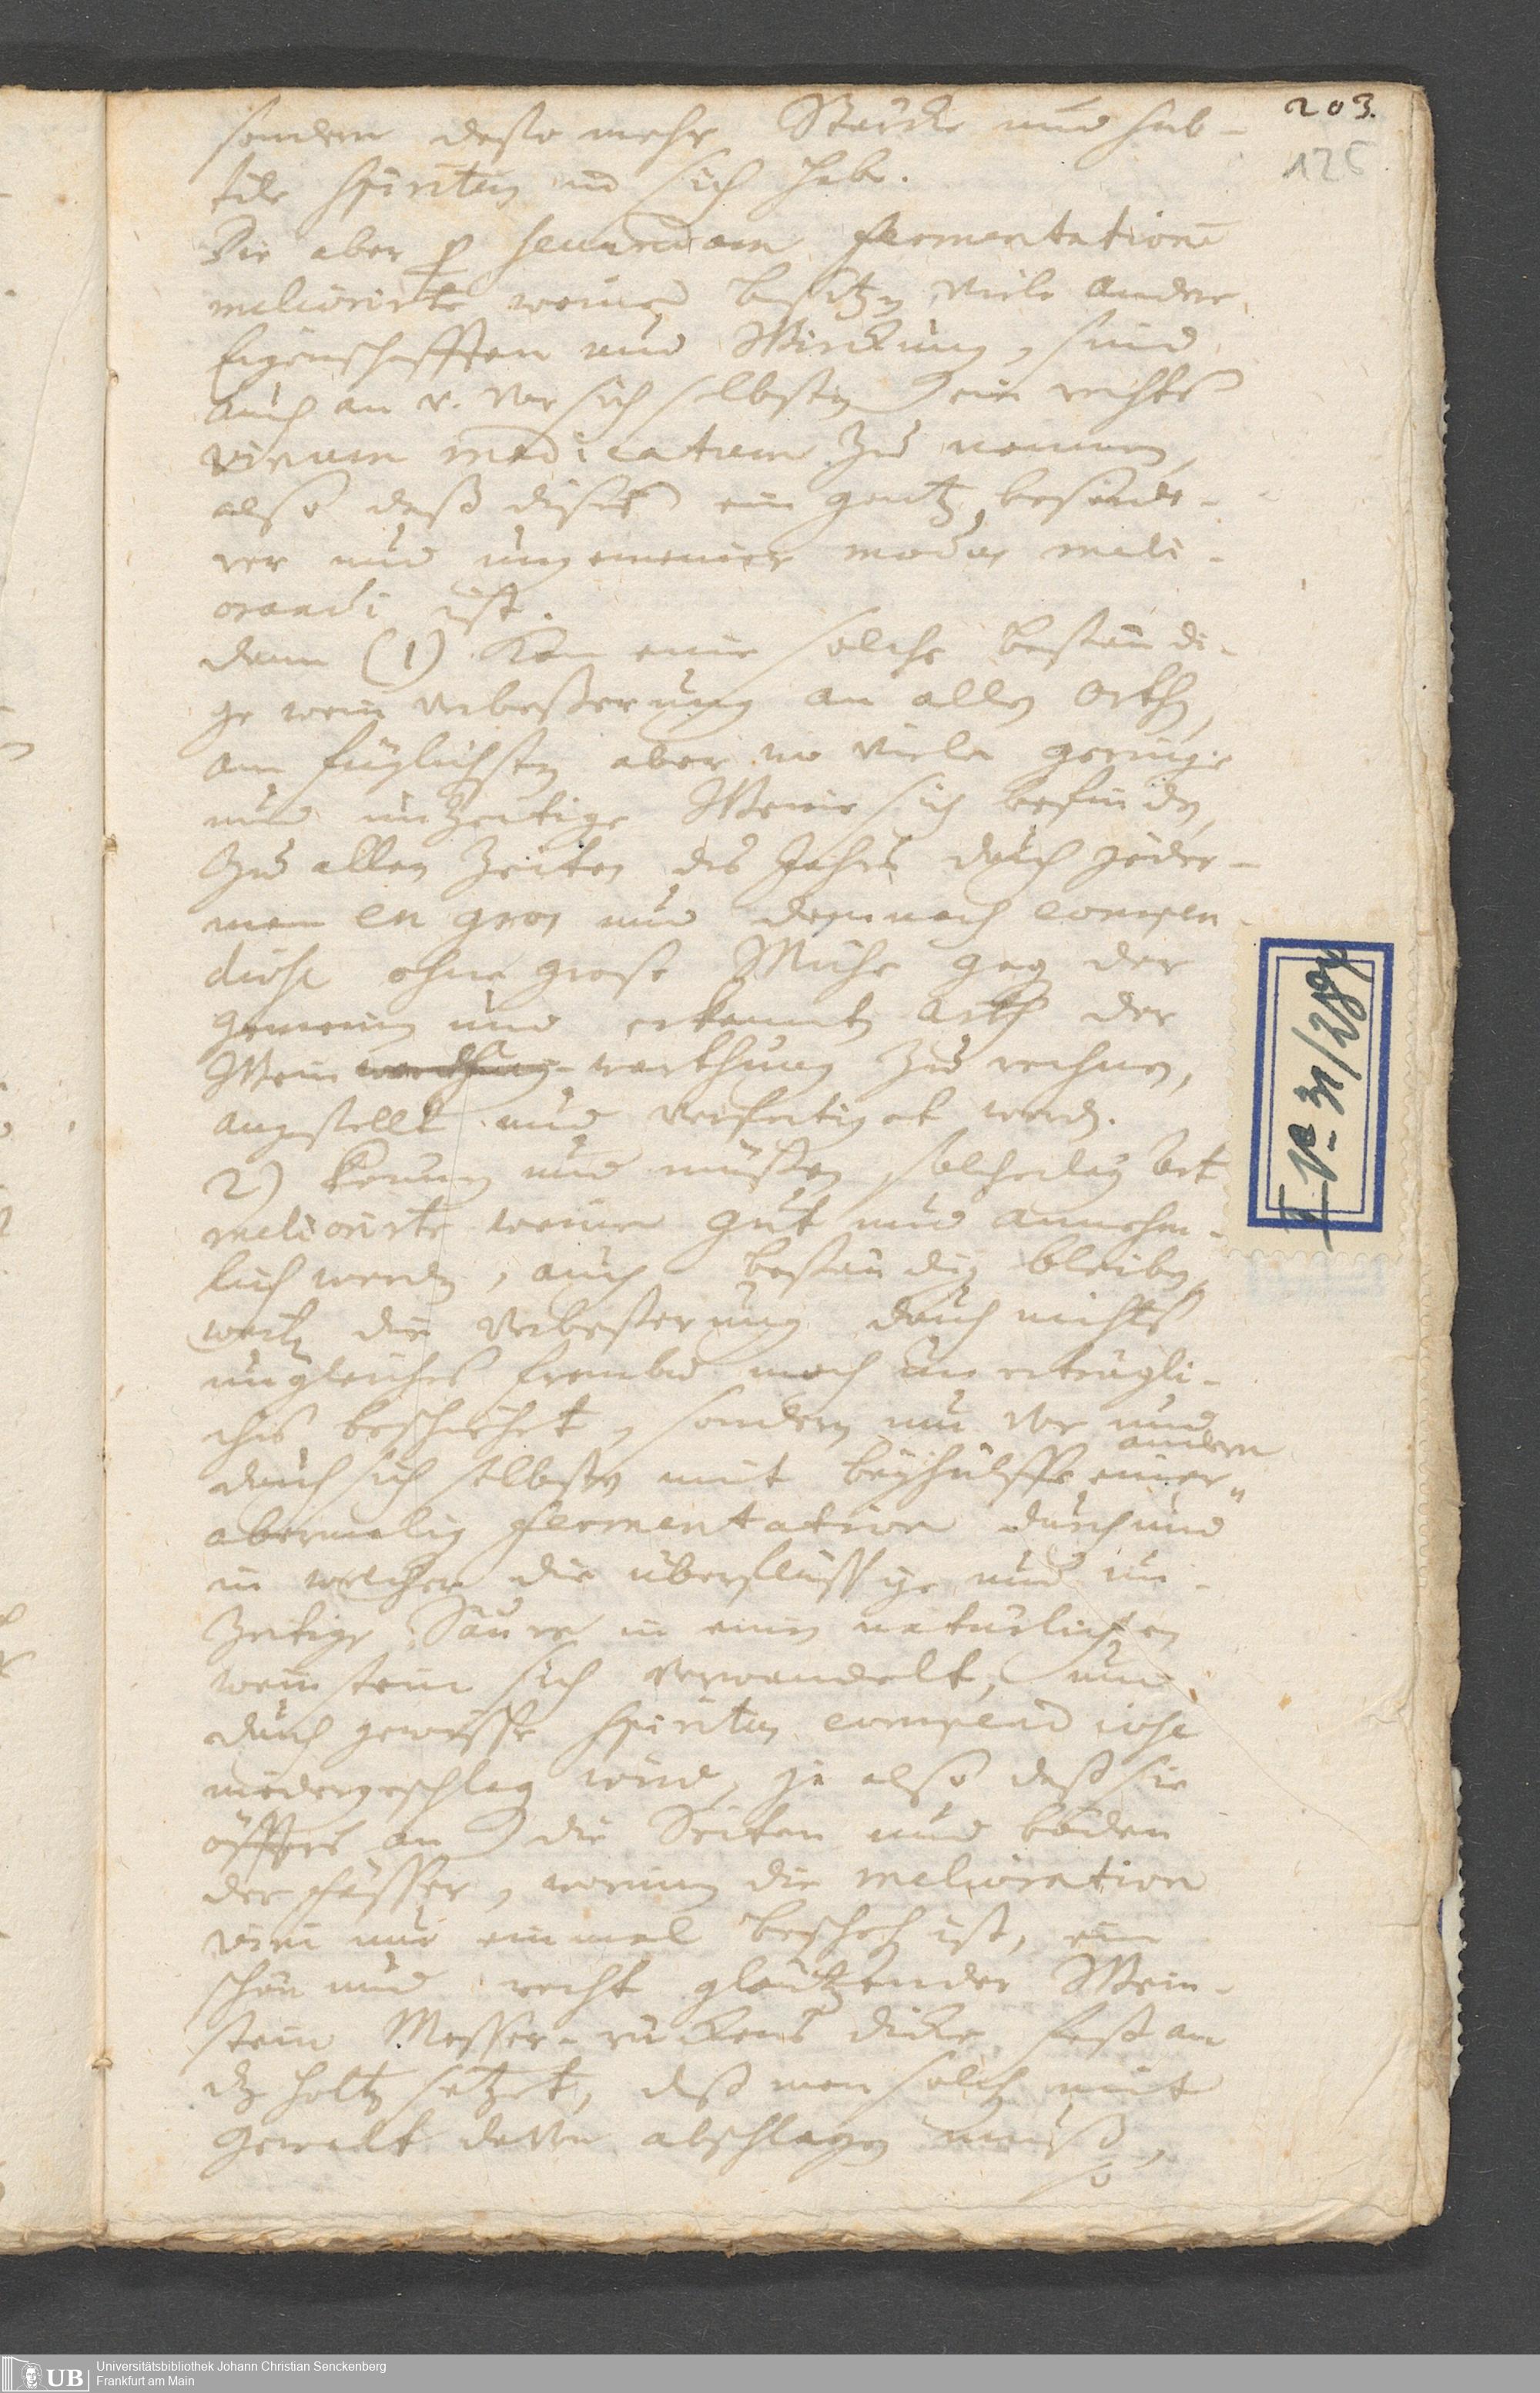 203.
125
sondern desto mehr Stärcke und sub-
tile spiritus in sich habe.
Die aber p secundam fermentatione
meliorirte weine besitzen viele andere
Eigenschafften und Wirckung, sind
auch an v. vor sich selbsten ein rechtes
vinum medicatum zu nennen,
also daß dises ein gantz besonde-
rer und ungemeiner modus meli-
orandi ist.
dann (1) Kan eine solche beständi-
ge wein verbeßerung an allen Orthen,
am füglichsten aber wo viele geringe
und unzeitige Weine sich befinden,
Zu allen Zeiten des Jahrs durch jeder-
man en gros und demnach compen-
diose ohne große Mühe geg der
gemeinen und erkannten Arth der
Wein warthung zu rechnen,
angestellt und verfertiget werden.
2) Können und müßen solcherley Art
meliorirte weine gut und annehm-
lich werden, auch beständig bleiben,
weilen die Verbeßerung durch nichts
ungleiches frembd noch unerträgli-
ches beschiehet, sondern nur vor und
andern
durch sich selbsten mit beyhülffe einer "
abermalig fermentation durch und
in welcher die überflüssige und un-
zeitige Säure in einen natürlichen
weinstein sich verwandelt, und
durch gewisse spiritus compendiose
niedergeschlag wird, ja also daß sie
öffters an die Seiten und böden
der Fässer, worinn die melioration
vini nur einmal bescheh ist, ein
schön und recht gläntzender Wein-
stein Messer-rückens dicke fest an
dz holtz setzet, daß man solch mit
Gewalt davon abschlagen muß,
so
Universitätsbibliothek Johann Christian Senckenberg
Frankfurt am Main
UB